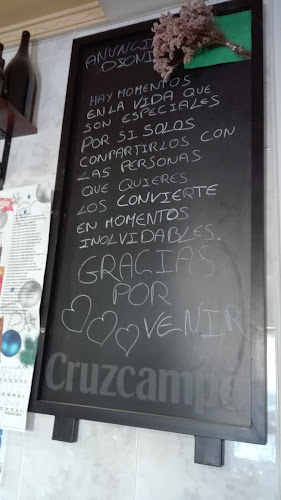 ANUNCI
DIONI
HAY MOMENTOS
EN LA VIDA QUE
SON ESPECIALES
POR SI SOLOS
CONPARTIRLOS CON
LAS PERSONAS
QUE QUIERES
LOS CONVIERTE
EN MOMENTOS
INOLVIDABLES.
GRACIAS
POR
VENIR
Cruzcampo